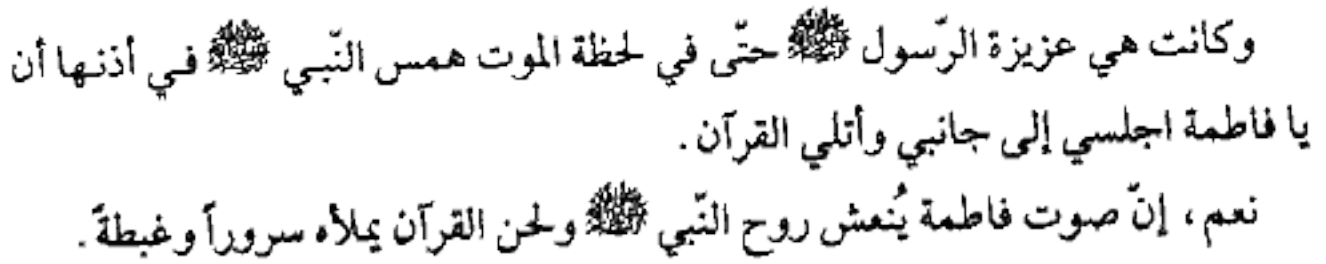 وكانت هي عزيزة الرّسول ﷺ حتّى في لحظة الموت همس النّبـي ﷺ فـي أذنـها أن
يا فاطمة اجلسي إلى جانبي وأتلي القرآن .
نعم ، إنّ صوت فاطمة يُنعش روح النّبي ﷺ ولحن القرآن يملأه سروراً وغبطةً .